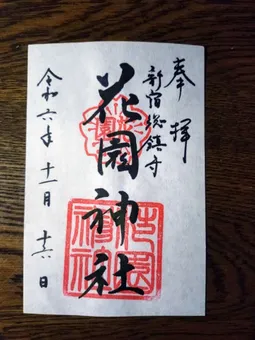 奉拝
新宿総鎮守
花園神社
令和六年十一月十六日